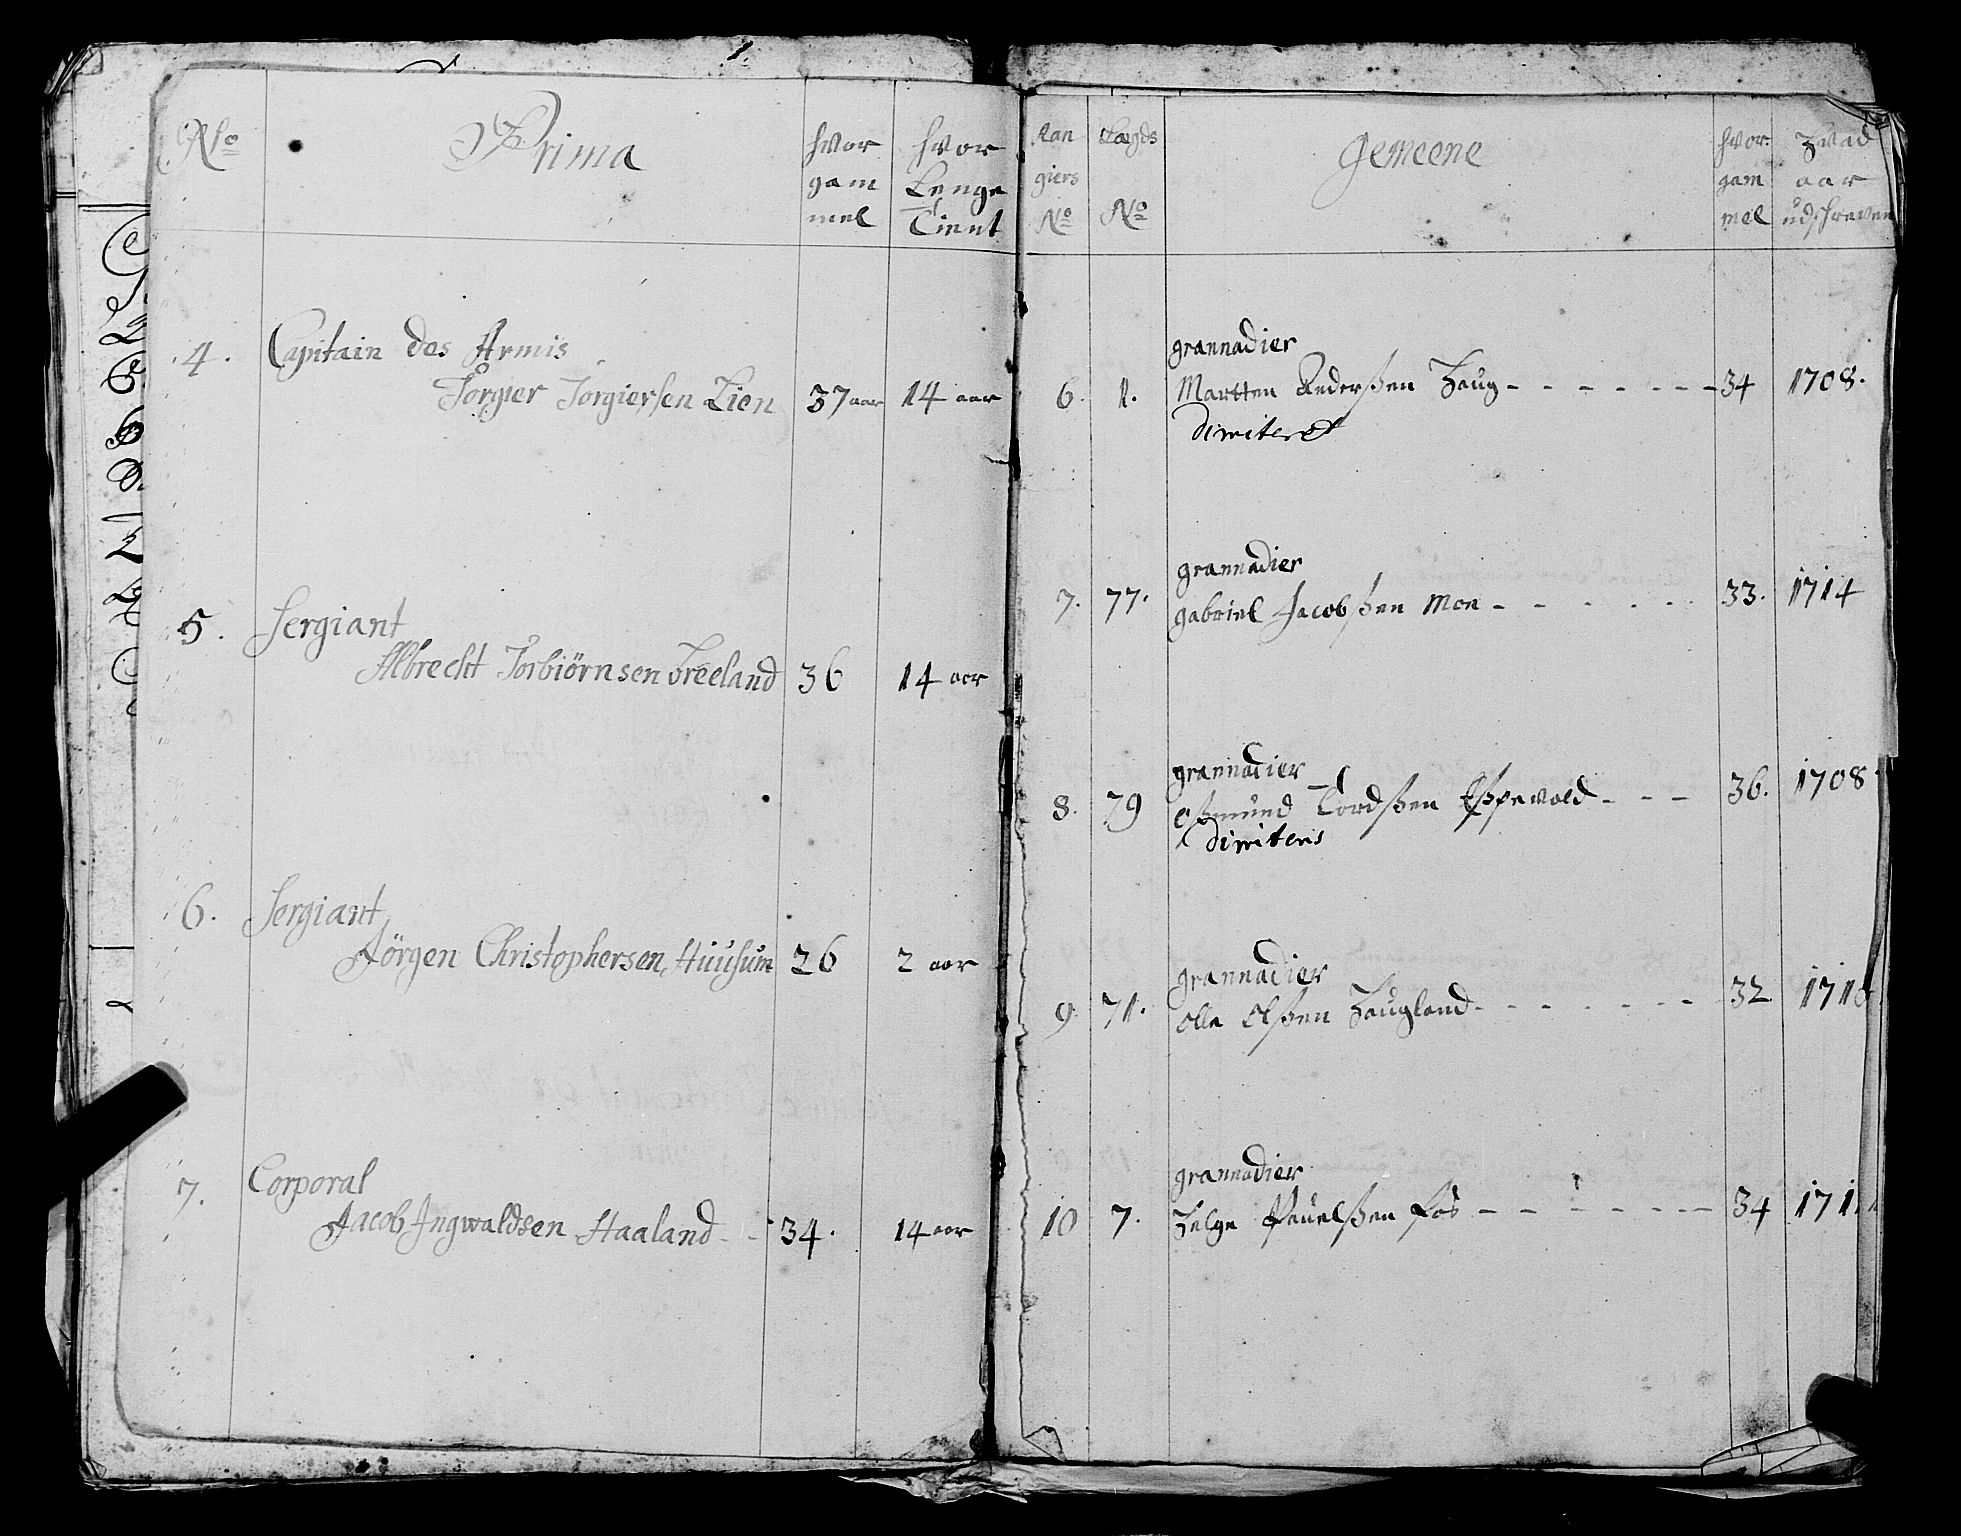 1.
No Prima hvor gam mel hvor Lenge Tient
4. Capitain des Armis
Torgier Torgiersen Lien 37 aar 14 aar
5. Sergiant
Albrecht Torbiörnsen Treeland 36 14 aar
6. Sergiant
Jörgen Christophersen Huusum 26 2 aar
7. Corporal
Jacob Ingwaldsen Haaland - - 34. 14 aar
Ran giers No Lægds No Gemeene hvor gam mel Hvad aar udschreven
grannadier
6. 1. Martten Anderßen Haug - - - - - - 34 1708.
Dimiteret
grannadier
7. 77. gabriel Jacobßen Moe - - - - - - 33. 1714
grannadier
8. 79 Oßmund Tordßen Eßpevold - - - 36. 1708
Dimiteris
grannadier
9. 71. Olle Olßen Haugland - - - - - - - 32
grannadier
10 7. Helge Pouelßen Fos - - - - - - - 34